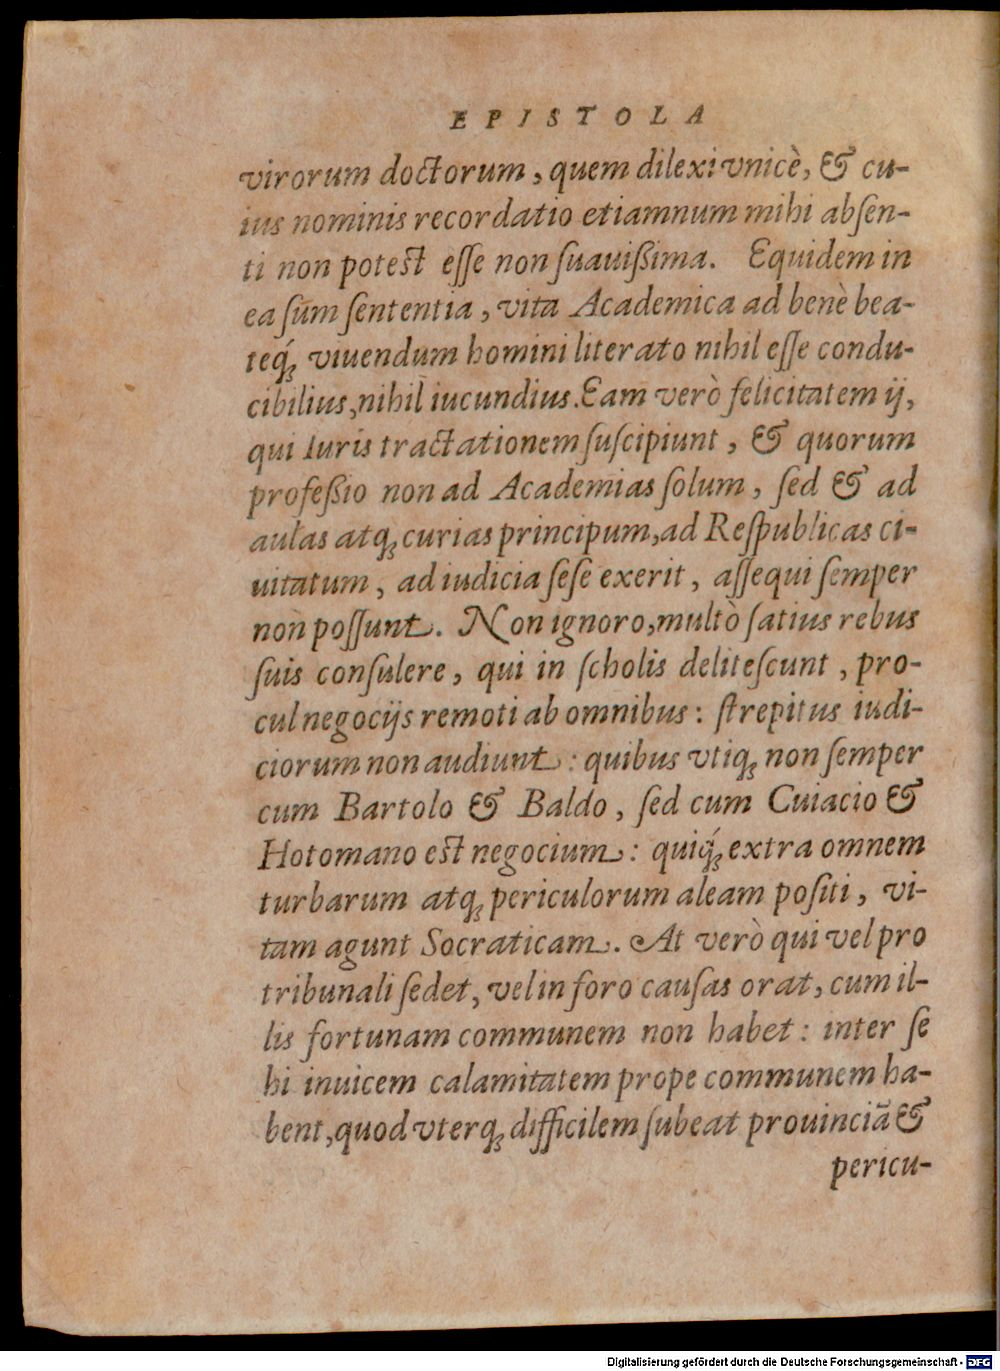 EPISTOLA
virorum doctorum, quem dilexi vnicè, & cu-
ius nominis recordatio etiamnum mihi absen-
ti non potest esse non suauißima. Equidem in
ea sum sententia, vita Academica ad benè bea-
teq́; viuendum homini literato nihil esse condu-
cibilius, nihil iucundius. Eam verò felicitatem ij,
qui Iuris tractationem suscipiunt, & quorum
profeßio non ad Academias solum, sed & ad
aulas atq; curias principum, ad Respublicas ci-
uitatum, ad iudicia sese exerit, assequi semper
non possunt. Non ignoro, multò satius rebus
suis consulere, qui in scholis delitescunt, pro-
cul negocijs remoti ab omnibus: strepitus iudi-
ciorum non audiunt: quibus vtiq; non semper
cum Bartolo & Baldo, sed cum Cuiacio &
Hotomano est negocium: quiq́; extra omnem
turbarum atq; periculorum aleam positi, vi-
tam agunt Socraticam. At verò qui vel pro
tribunali sedet, vel in foro causas orat, cum il-
lis fortunam communem non habet: inter se
hi inuicem calamitatem prope communem ha-
bent, quod vterq; difficilem subeat prouinciã &
pericu-
Digitalisierung gefördert durch die Deutsche Forschungsgemeinschaft - DFG